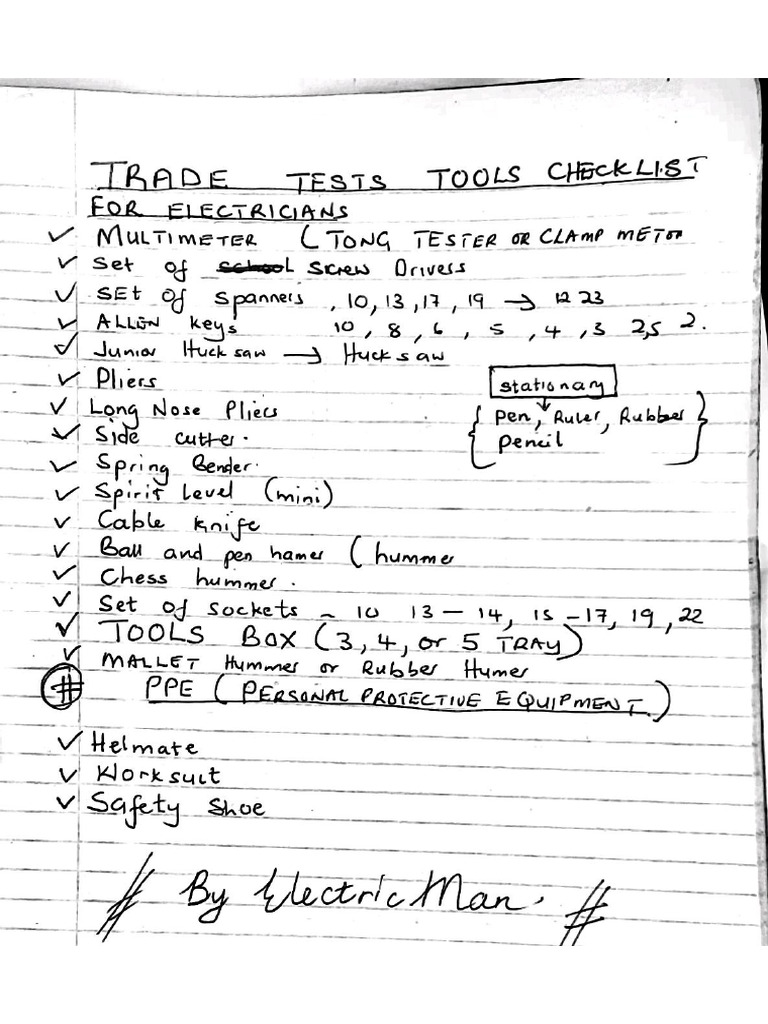 TRADE TESTS TOOLS CHECKLIST
FOR ELECTRICIANS
✓ MULTIMETER (TONG TESTER OR CLAMP METOR
✓ Set of school SCREW Drivers
✓ SEt Of Spanners , 10, 13, 17, 19 → 12 23
✓ ALLEN keys 10, 8, 6, 5, 4, 3 2,5 2.
✓ Junior Huck saw → Hucksaw
✓ Pliers
stationary
✓ Long Nose Pliers
{ pen, Ruler, Rubber }
✓ Side cutter.
pencil
✓ Spring Bender.
✓ Spirit Level (mini)
✓ Cable knife
✓ Ball and pen hamer (hummer
✓ Chess hummer.
✓ Set of sockets – 10 13 – 14, 15 – 17, 19, 22
✓ TOOLS BOX (3, 4, or 5 TRAY)
✓ MALLET Hummer or Rubber Humer
# PPE (PERSONAL PROTECTIVE EQUIPMENT)
✓ Helmate
✓ Worksuit
✓ Safety Shoe
# By Electric Man. #